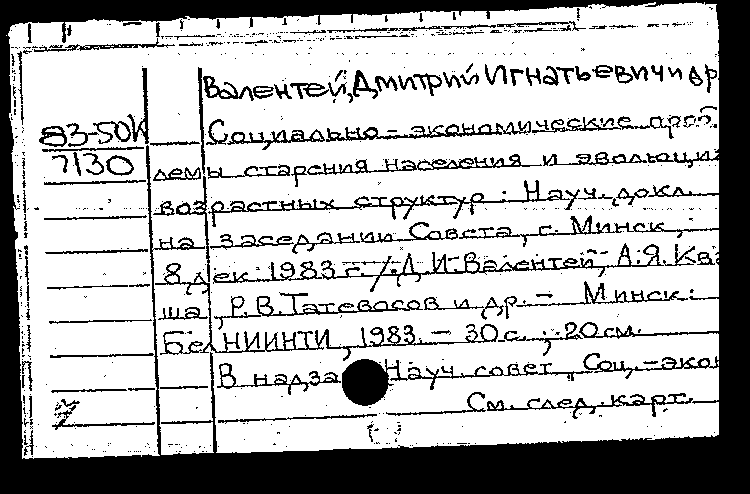 Валентей, Дмитрий Игнатьевич и др
83-50К Социально-экономические проб.
7130 лемы старения населения и эволюци
возрастных структур : Науч. докл.
на заседании Совета, г. Минск,
8 дек. 1983 г. / Д.И. Валентей, А.Я. Ква
ша, Р.В. Татевосов и др. - Минск:
БелНИИНТИ, 1983. - 30 с.; 20 см.
В надза Науч. совет „Соц.-экон
См. след. карт.